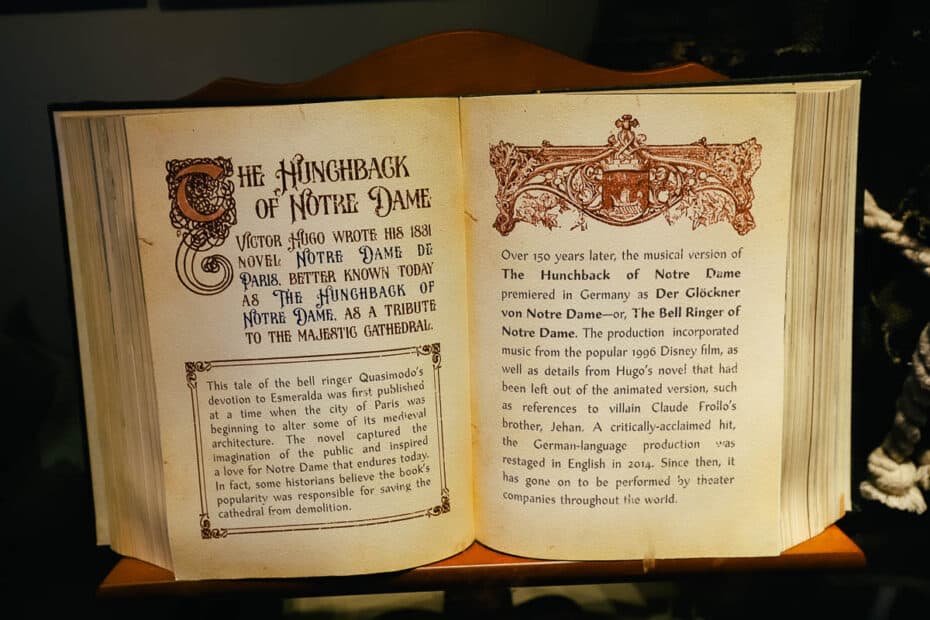 THE HUNCHBACK
OF NOTRE DAME
VICTOR HUGO WROTE HIS 1831
NOVEL NOTRE DAME DE
PARIS, BETTER KNOWN TODAY
AS THE HUNCHBACK OF
NOTRE DAME, AS A TRIBUTE
TO THE MAJESTIC CATHEDRAL.
This tale of the bell ringer Quasimodo's
devotion to Esmeralda was first published
at a time when the city of Paris was
beginning to alter some of its medieval
architecture. The novel captured the
imagination of the public and inspired
a love for Notre Dame that endures today.
In fact, some historians believe the book's
popularity was responsible for saving the
cathedral from demolition.
Over 150 years later, the musical version of
The Hunchback of Notre Dame
premiered in Germany as Der Glöckner
von Notre Dame—or, The Bell Ringer of
Notre Dame. The production incorporated
music from the popular 1996 Disney film, as
well as details from Hugo's novel that had
been left out of the animated version, such
as references to villain Claude Frollo's
brother, Jehan. A critically-acclaimed hit,
the German-language production was
restaged in English in 2014. Since then, it
has gone on to be performed by theater
companies throughout the world.